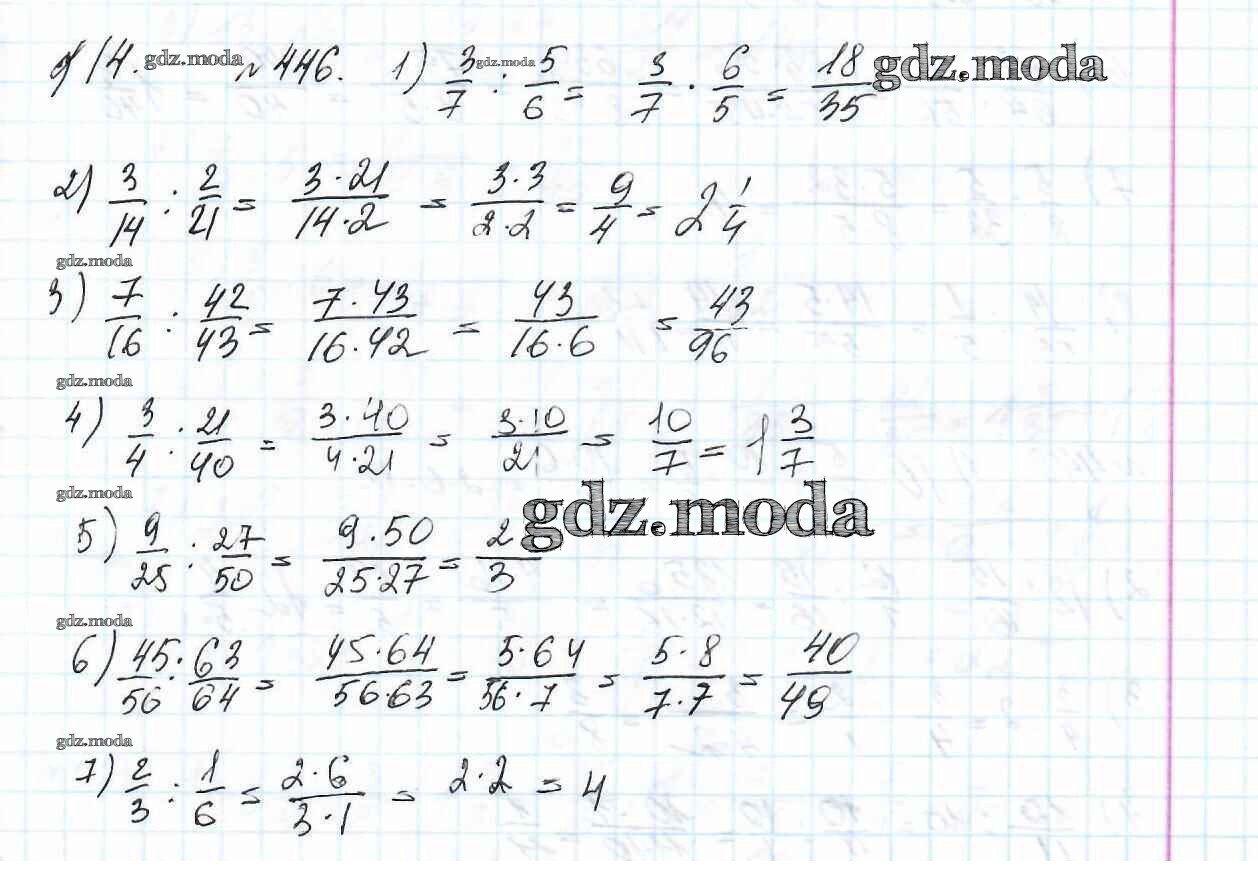 §14. gdz.moda № 446. 1) 3/7 gdz.moda : 5/6 = 3/7 · 6/5 = 18/35 gdz.moda
2) 3/14 : 2/21 = 3·21/14·2 = 3·3/2·2 = 9/4 = 2 1/4
gdz.moda
3) 7/16 : 42/43 = 7·43/16·42 = 43/16·6 = 43/96
gdz.moda
4) 3/4 : 21/40 = 3·40/4·21 = 3·10/21 = 10/7 = 1 3/7
gdz.moda gdz.moda
5) 9/25 : 27/50 = 9·50/25·27 = 2/3
gdz.moda
6) 45/56 : 63/64 = 45·64/56·63 = 5·64/56·7 = 5·8/7·7 = 40/49
gdz.moda
7) 2/3 : 1/6 = 2·6/3·1 = 2·2 = 4